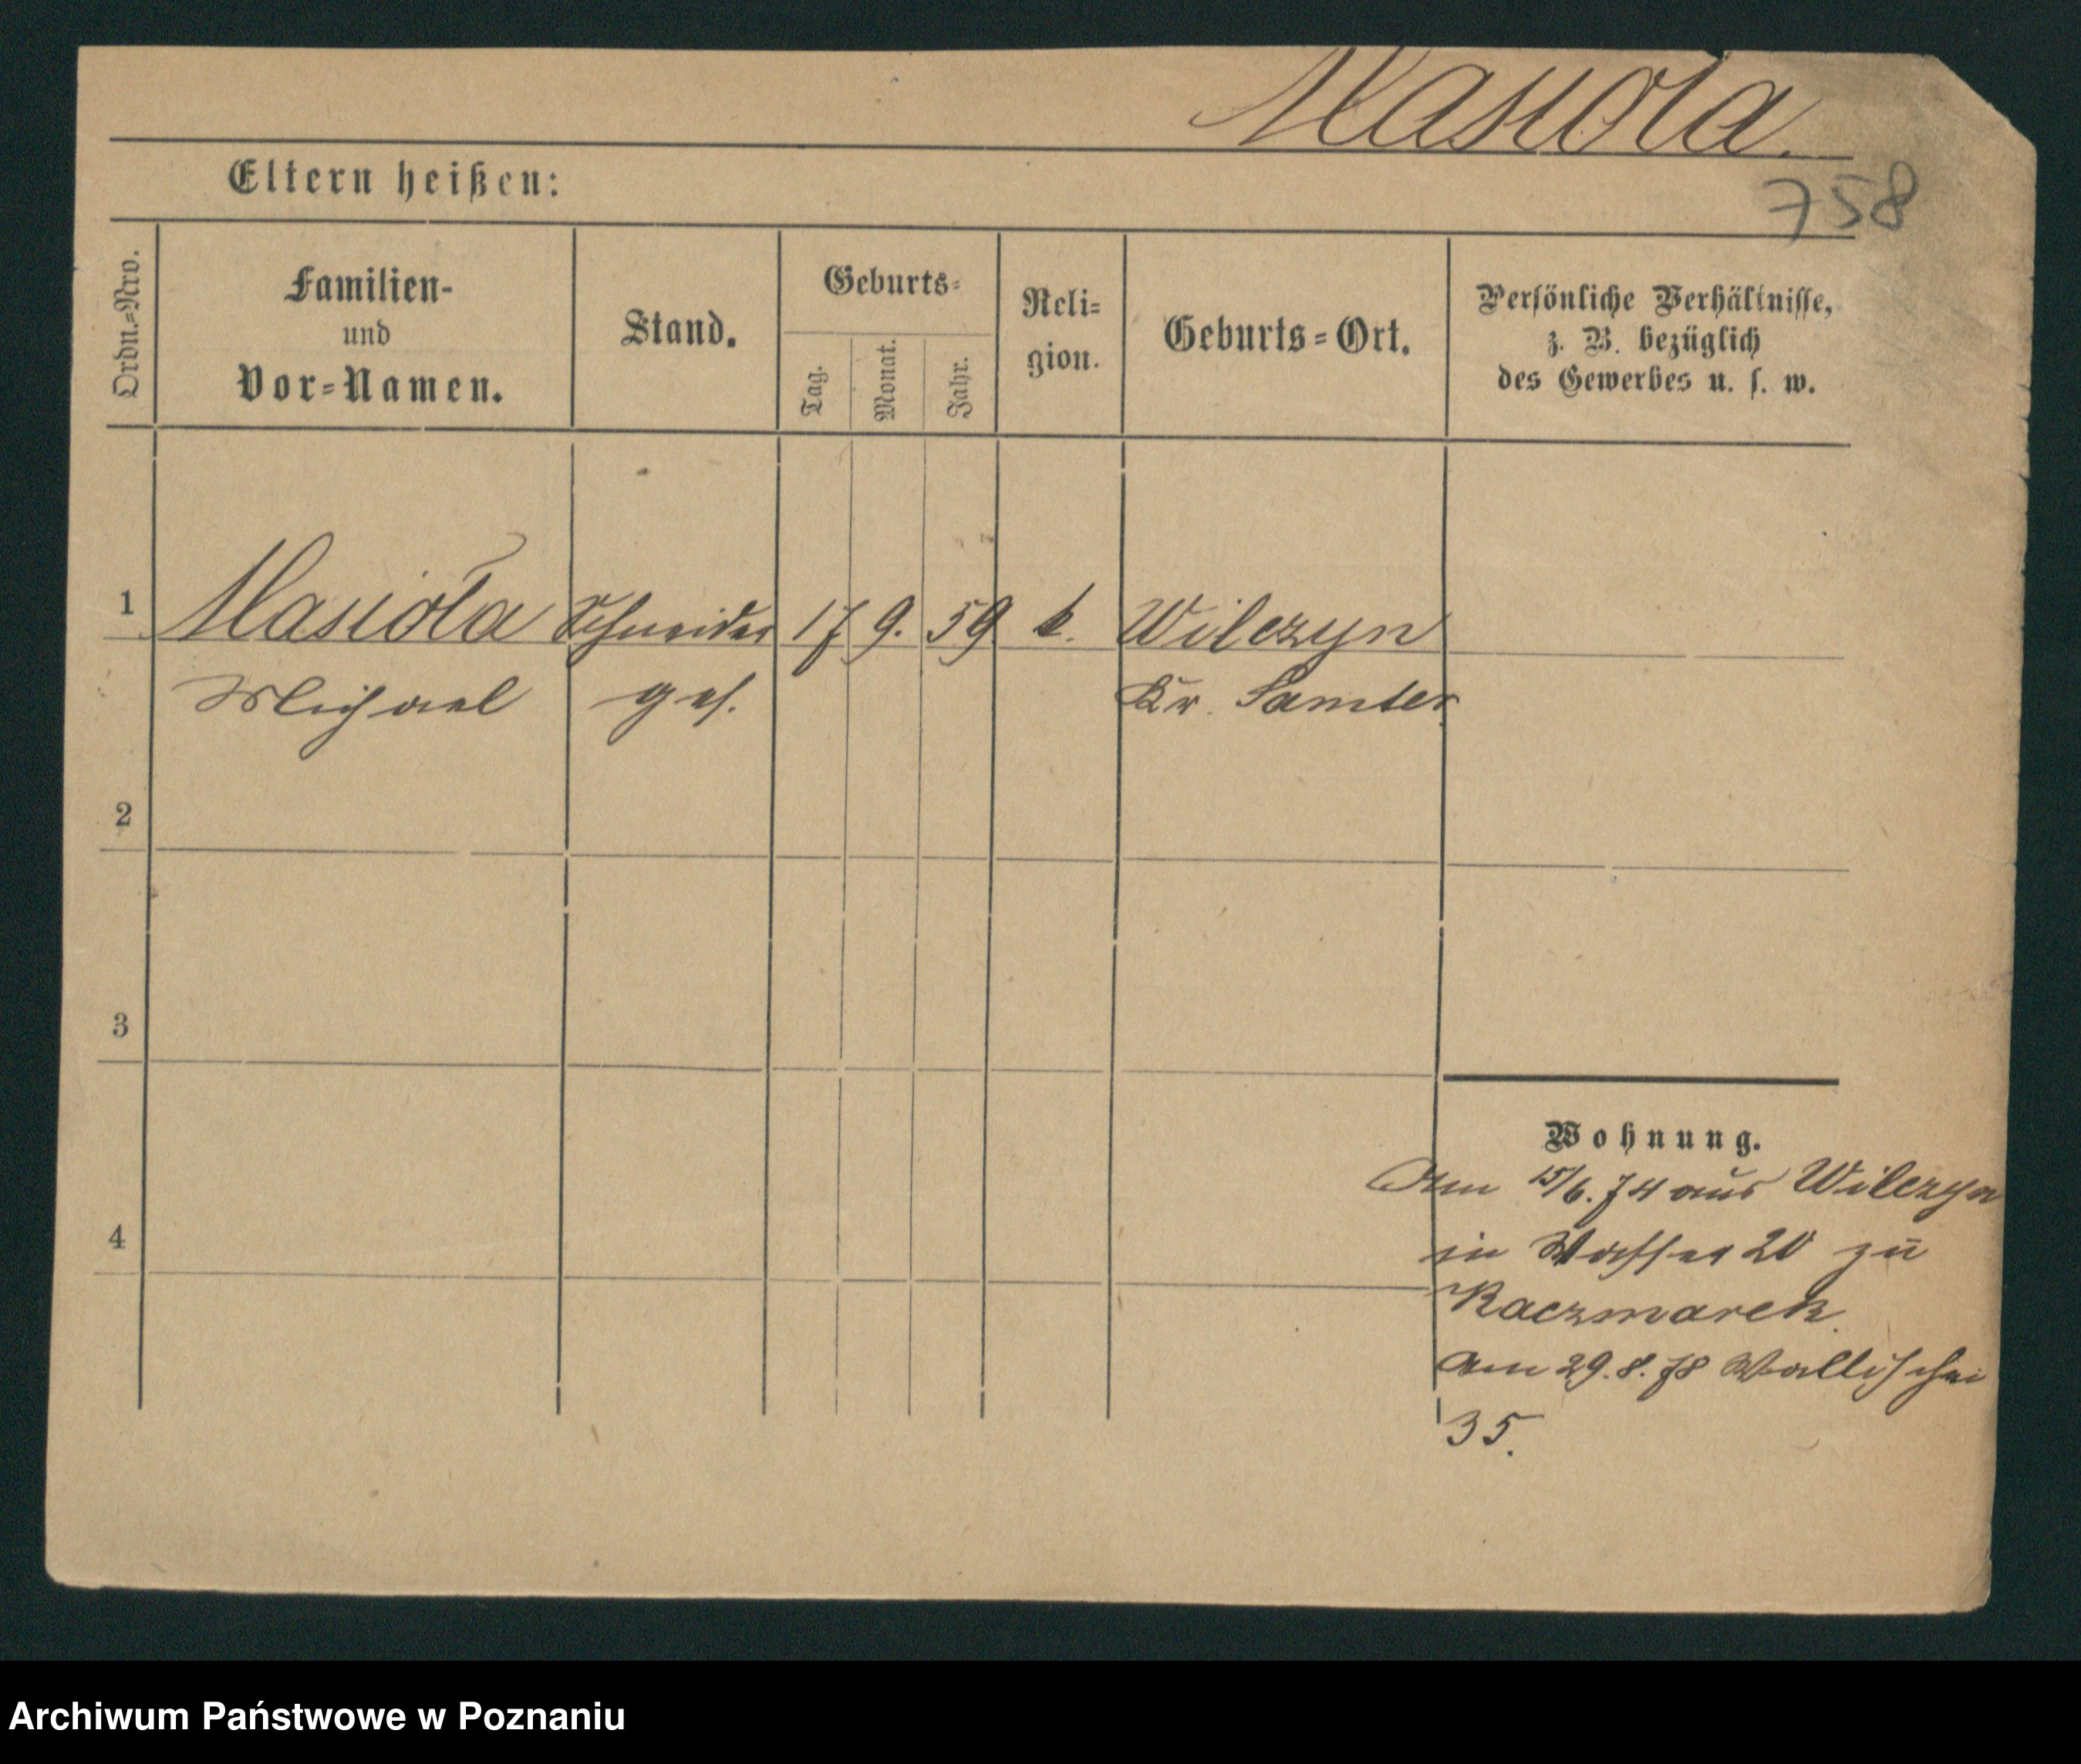 Masiota.
758
Eltern heißen:
Ordn.=Nro.
Familien-
und
Vor=Namen.
Stand.
Geburts=
Tag.
Monat.
Jahr.
Reli=
gion.
Geburts=Ort.
Persönliche Verhältnisse,
z. B. bezüglich
des Gewerbes u. s. w.
1 Masioła Schneider 17 9. 59 k. Wilczyn
Michael ges. Kr. Samter
2
3
4
Wohnung.
Am 15/6. 74 aus Wilczyn
in Wasser 20 zu
Kaczmarek.
Am 29.8.78 Wallischei
35.
Archiwum Państwowe w Poznaniu